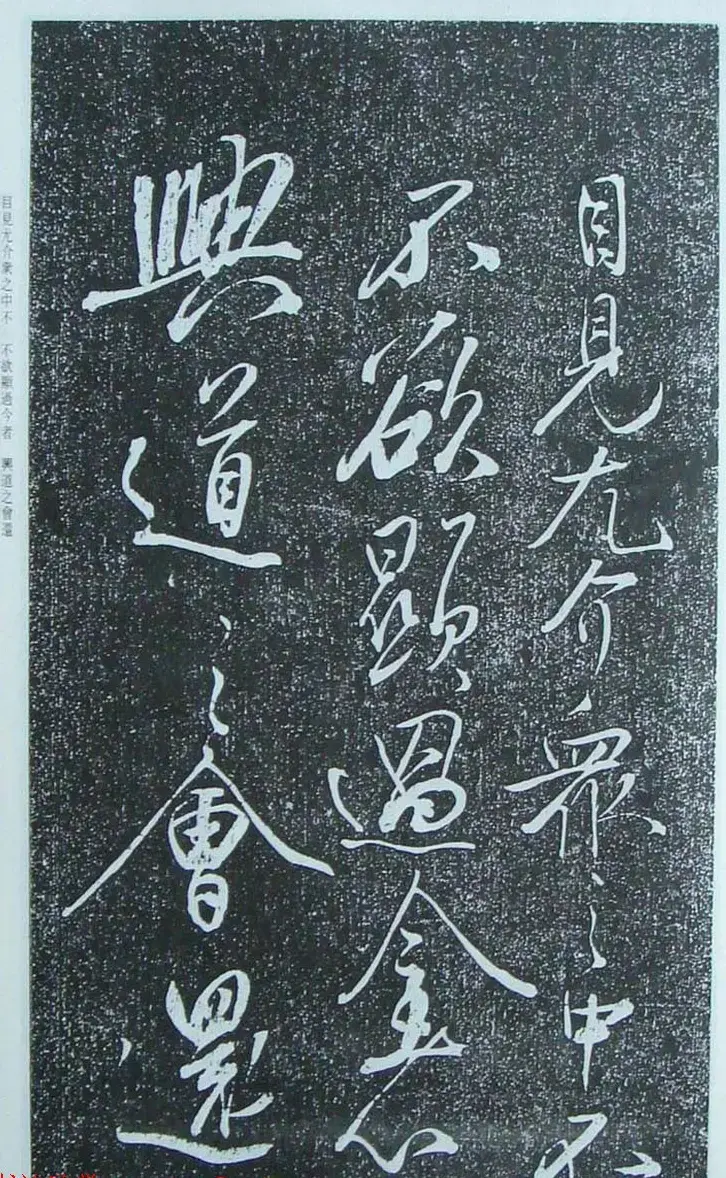 目見尤介衆之中不
不欲顯過金
興道之會還
目見尤介衆之中不　不欲顯過今者　興道之會還